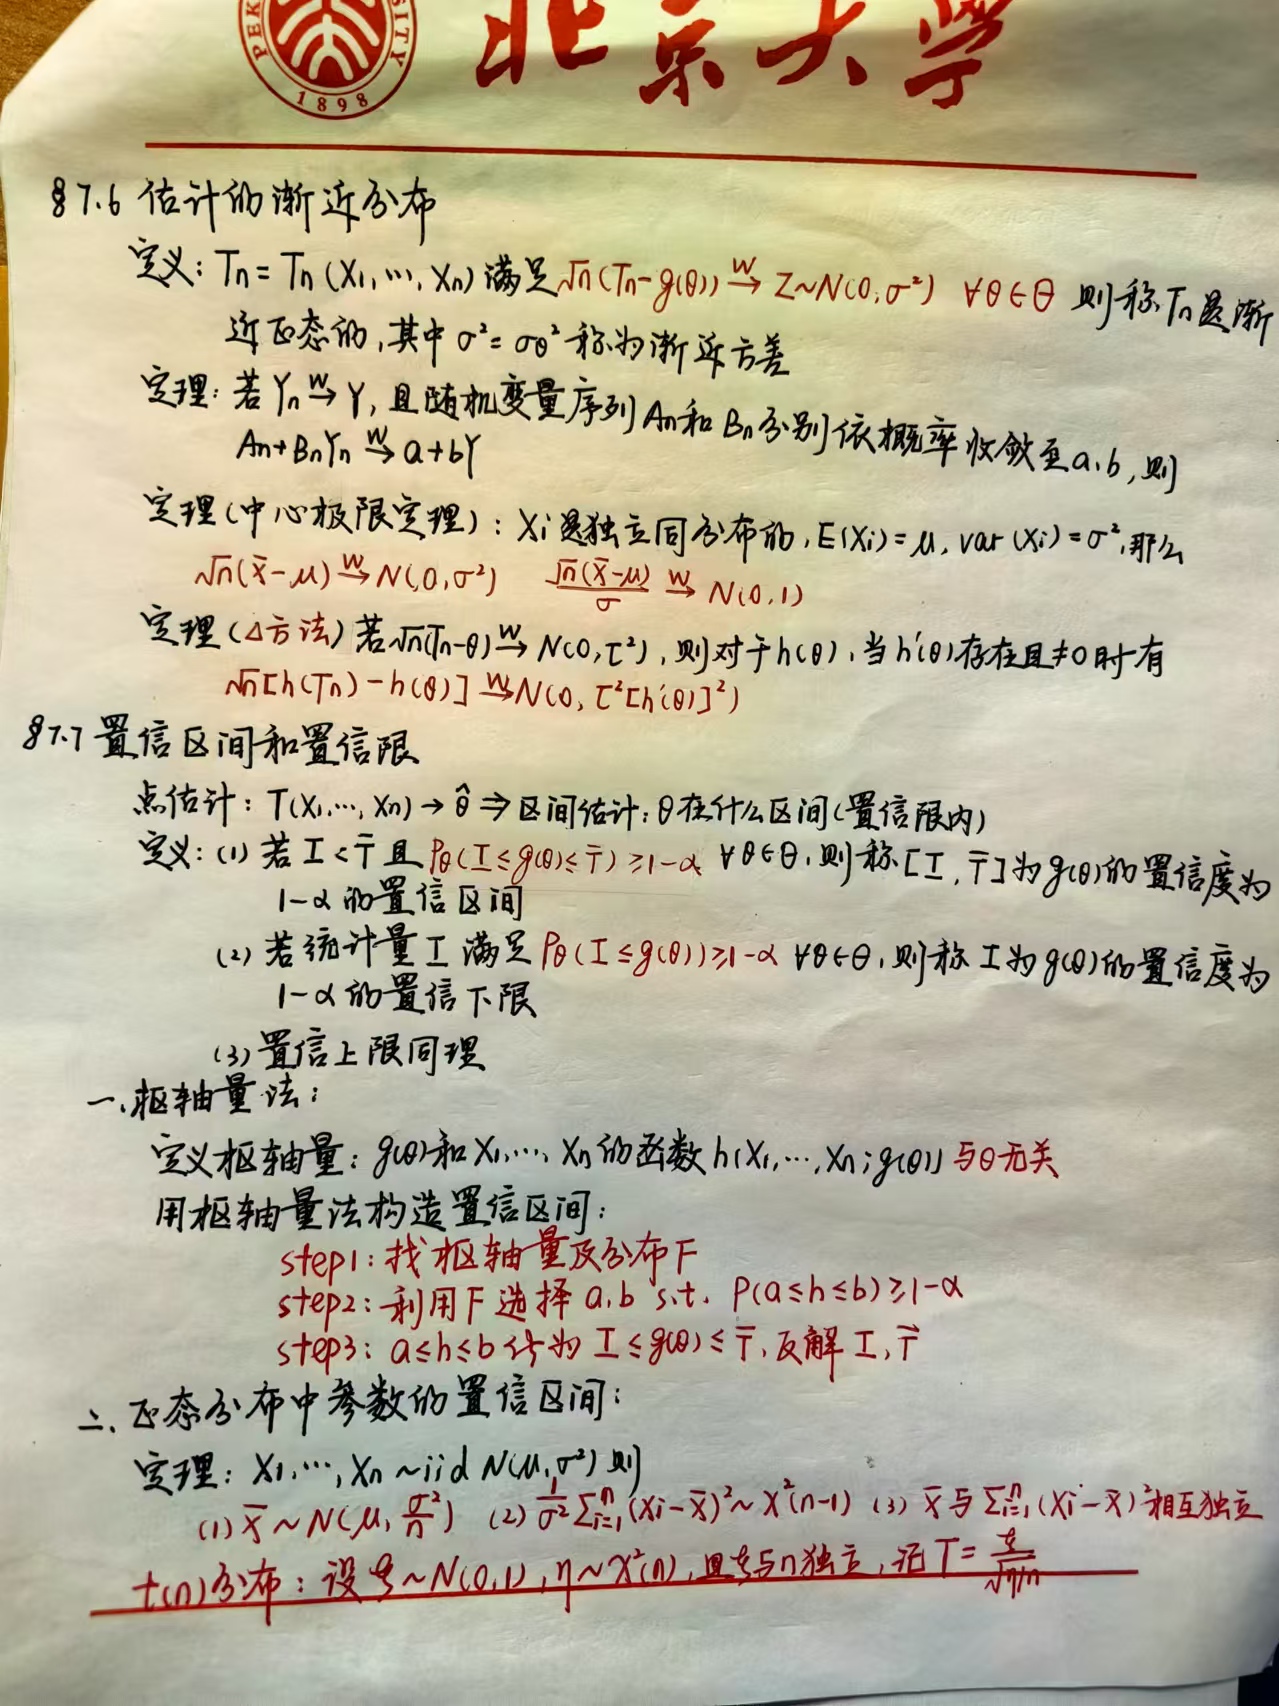 PEK SITY
1898
北京大学
§7.6 估计的渐近分布
定义: Tn = Tn (X₁, ⋯, Xn) 满足 √n(Tn-g(θ)) →ʷ Z~N(0,σ²) ∀θ∈Θ 则称Tn是渐
近正态的,其中 σ²=σθ² 称为渐近方差
定理: 若 Yn →ʷ Y, 且随机变量序列 An 和 Bn 分别依概率收敛至 a、b, 则
An+BnYn →ʷ a+bY
定理(中心极限定理): Xi是独立同分布的, E(Xi)=μ, var(Xi)=σ², 那么
√n(X̄-μ) →ʷ N(0,σ²) √n(X̄-μ)/σ →ʷ N(0,1)
定理(Δ方法) 若√n(Tn-θ) →ʷ N(0,τ²), 则对于h(θ), 当h′(θ)存在且≠0时有
√n[h(Tn)-h(θ)] →ʷ N(0, τ²[h′(θ)]²)
§7.7 置信区间和置信限
点估计: T(X₁,⋯,Xn) → θ̂ ⇒ 区间估计: θ在什么区间(置信限内)
定义: (1) 若 T̲ < T̄ 且 Pθ(T̲≤g(θ)≤T̄)≥1-α ∀θ∈Θ, 则称[T̲, T̄]为g(θ)的置信度为
1-α的置信区间
(2) 若统计量 T̲ 满足 Pθ(T̲≤g(θ))≥1-α ∀θ∈Θ, 则称 T̲ 为g(θ)的置信度为
1-α的置信下限
(3) 置信上限同理
一、枢轴量法:
定义枢轴量: g(θ)和X₁,⋯, Xn的函数h(X₁,⋯,Xn;g(θ)) 与θ无关
用枢轴量法构造置信区间:
step1: 找枢轴量及分布F
step2: 利用F选择a,b s.t. P(a≤h≤b)≥1-α
step3: a≤h≤b 化为 T̲≤g(θ)≤T̄, 反解 T̲, T̄
二、正态分布中参数的置信区间:
定理: X₁,⋯,Xn ~iid N(μ,σ²) 则
(1) X̄~N(μ, σ²/n) (2) 1/σ² Σⁿᵢ₌₁(Xi-X̄)²~χ²(n-1) (3) X̄与Σⁿᵢ₌₁(Xi-X̄)²相互独立
t(n)分布: 设ξ~N(0,1), η~χ²(n), 且ξ与η独立, 记 T= ξ/√(η/n)